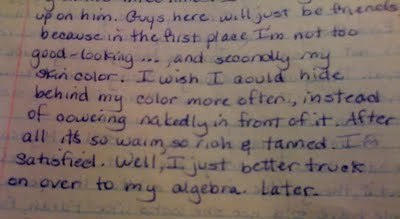 up on him. Guys here will just be friends
because in the first place I'm not too
good-looking..., and secondly my
skin color. I wish I could hide
behind my color more often, instead
of cowering nakedly in front of it. After
all it's so warm, so rich & tanned. I'm
satisfied. Well, I just better truck
on over to my algebra. Later.